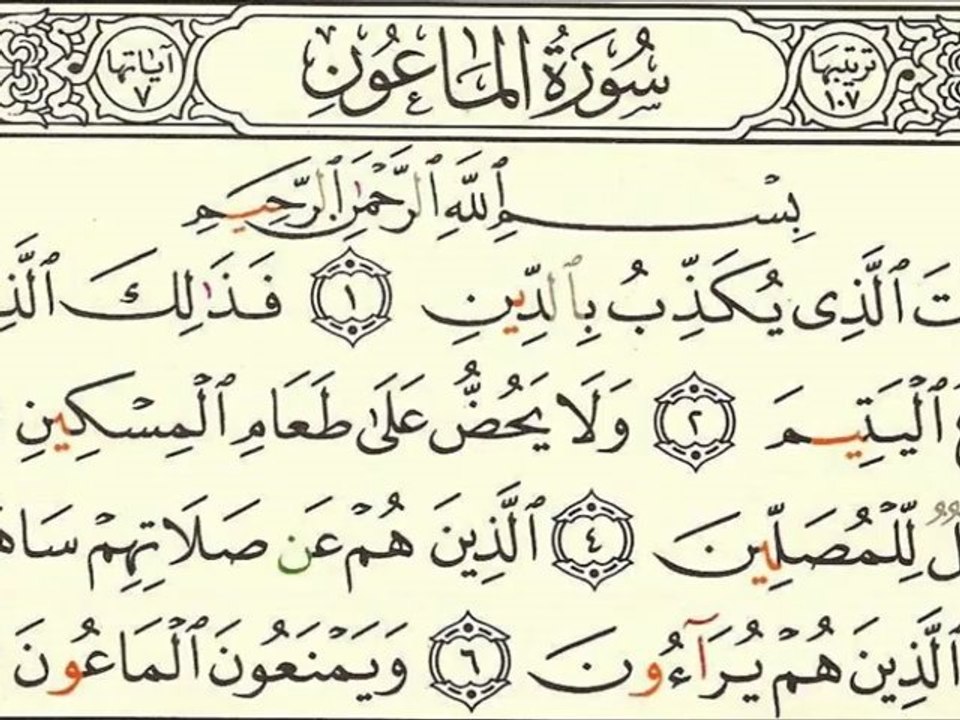 ترتيبها ١٠٧ سُورَةُ المَاعُونِ آياتها ٧
بِسْمِ ٱللَّهِ ٱلرَّحْمَٰنِ ٱلرَّحِيمِ
ٱلَّذِى يُكَذِّبُ بِٱلدِّينِ ١ فَذَٰلِكَ
ٱلْيَتِيمَ ٢ وَلَا يَحُضُّ عَلَىٰ طَعَامِ ٱلْمِسْكِينِ
لِّلْمُصَلِّينَ ٤ ٱلَّذِينَ هُمْ عَن صَلَاتِهِمْ
ٱلَّذِينَ هُمْ يُرَآءُونَ ٦ وَيَمْنَعُونَ ٱلْمَاعُونَ